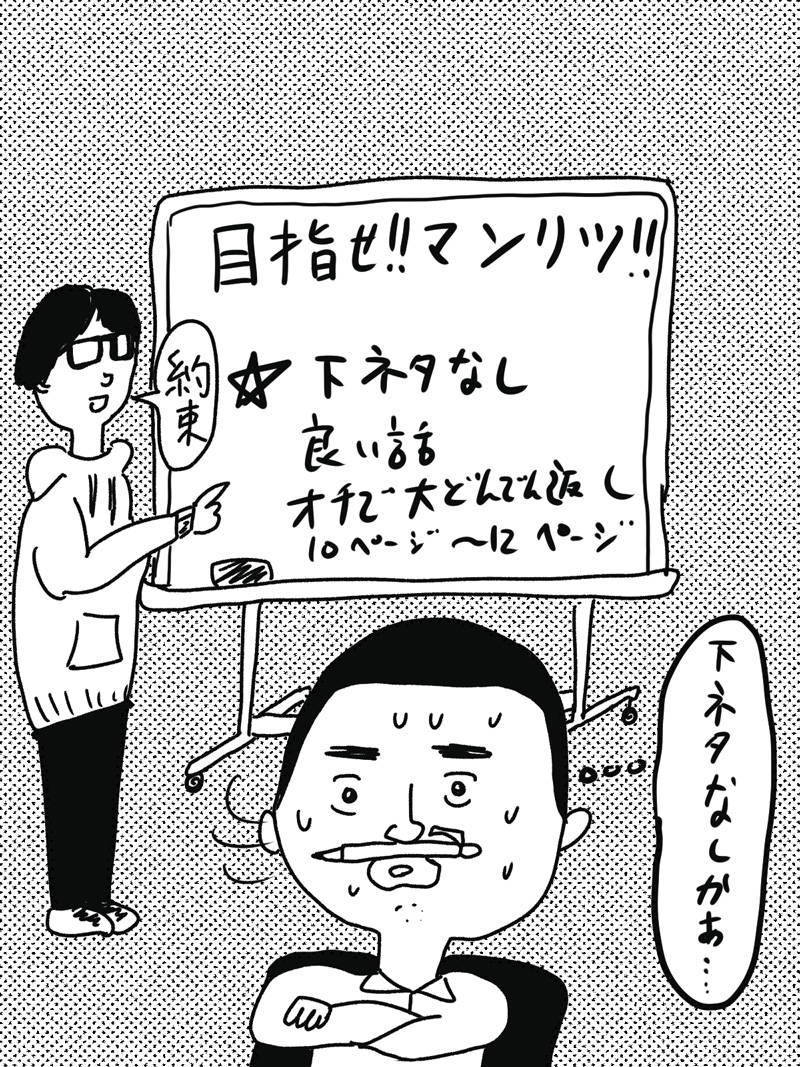 目指せ!!マンリツ!!
約束
☆下ネタなし
良い話
オチで大どんでん返し
10ページ〜12ページ
下ネタなしかあ…